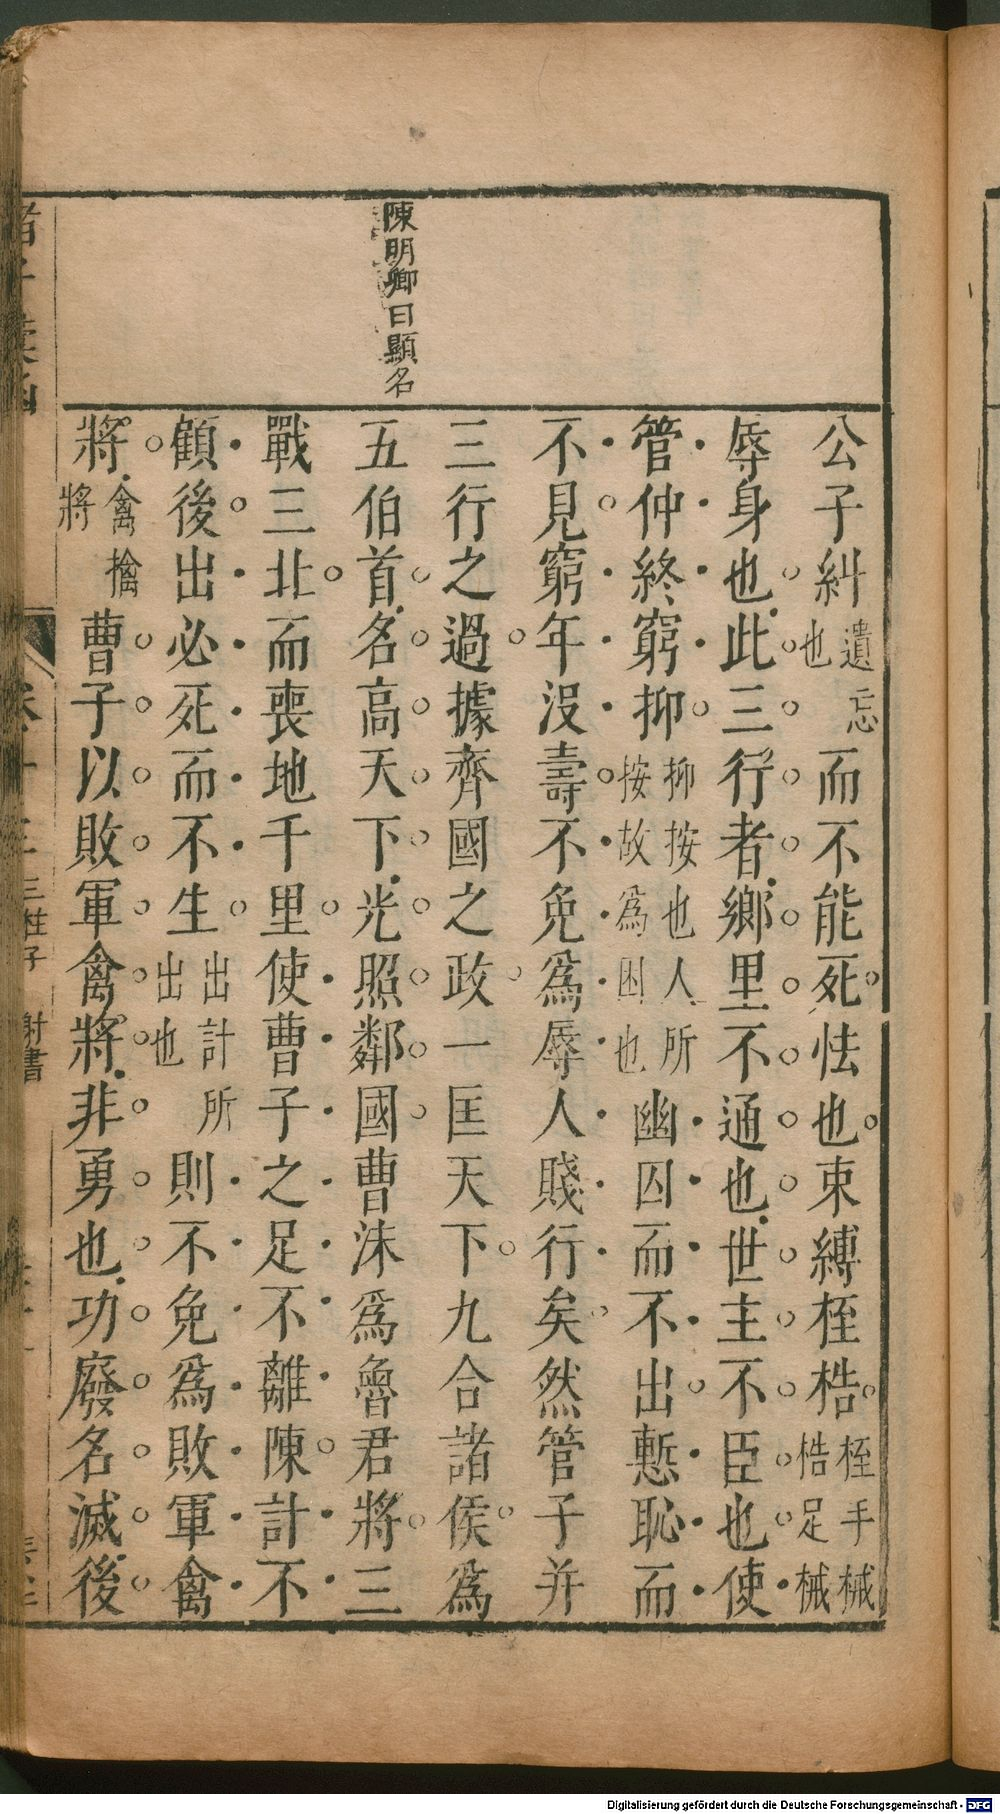 陳明卿曰顯名
公子糾遺忘也而不能死怯也束縛桎梏桎手械梏足械
辱身也此三行者鄉里不通也世主不臣也使
管仲終窮抑抑按也人所按故爲困也幽囚而不出慙恥而
不見窮年沒壽不免爲辱人賤行矣然管子并
三行之過據齊國之政一匡天下九合諸侯爲
五伯首名高天下光照鄰國曹沫爲魯君將三
戰三北而喪地千里使曹子之足不離陳計不
顧後出必死而不生出計所出也則不免爲敗軍禽
將禽擒將曹子以敗軍禽將非勇也功廢名滅後
諸子彙函
三柱子
射書
Digitalisierung gefördert durch die Deutsche Forschungsgemeinschaft - DFG